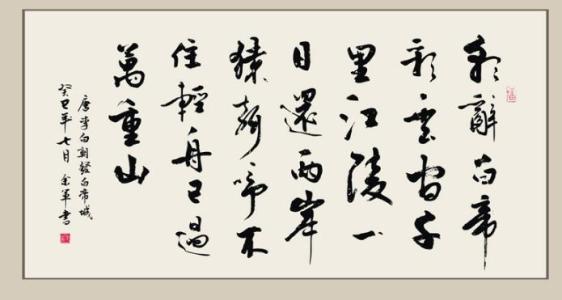 朝辭白帝
彩雲間千
里江陵一
日還兩岸
猿聲啼不
住輕舟已過
萬重山
唐李白朝發白帝城
癸巳年七月 軍書